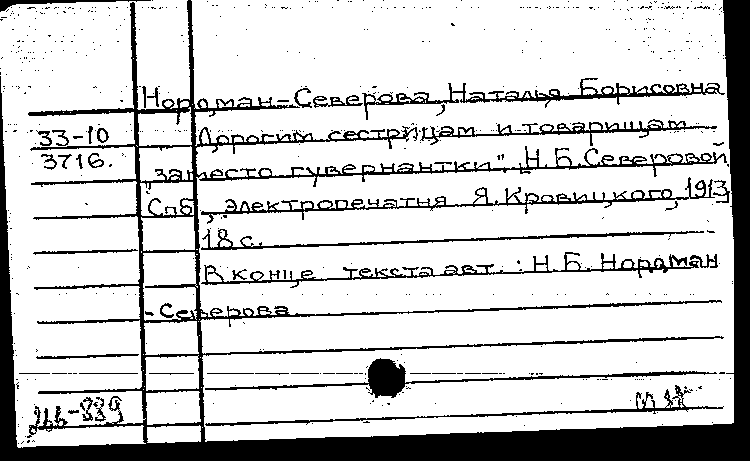 Нордман-Северова, Наталья Борисовна
33-10 Дорогим сестрицам и товарищам
3716. „заместо гувернантки". Н.Б.Северовой
Спб, электропечатня Я.Кровицкого, 1913
18 с.
В конце текста авт.: Н.Б. Нордман
-Северова.
-839